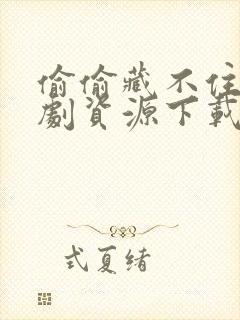 偷偷藏不住
劇資源下載
式夏绪